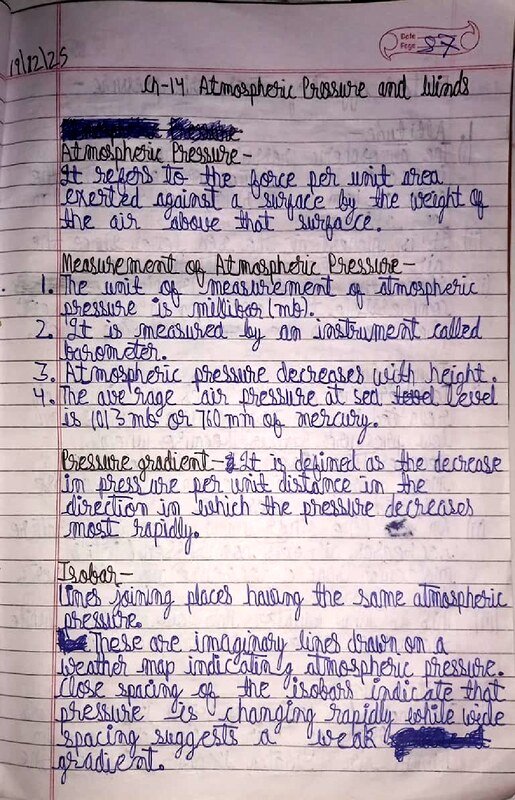 19/12/25
Date
Page 87
Ch-14 Atmospheric Pressure and Winds
Atmospheric Pressure-
It refers to the force per unit area
exerted against a surface by the weight of
the air above that surface.
Measurement of Atmospheric Pressure-
1. The unit of measurement of atmospheric
pressure is millibar (mb).
2. It is measured by an instrument called
barometer.
3. Atmospheric pressure decreases with height.
4. The average air pressure at sea level
is 1013 mb or 760 mm of mercury.
Pressure gradient- It is defined as the decrease
in pressure per unit distance in the
direction in which the pressure decreases
most rapidly.
Isobar-
Lines joining places having the same atmospheric
pressure.
These are imaginary lines drawn on a
weather map indicating atmospheric pressure.
Close spacing of the isobars indicate that
pressure is changing rapidly while wide
spacing suggests a weak
gradient.